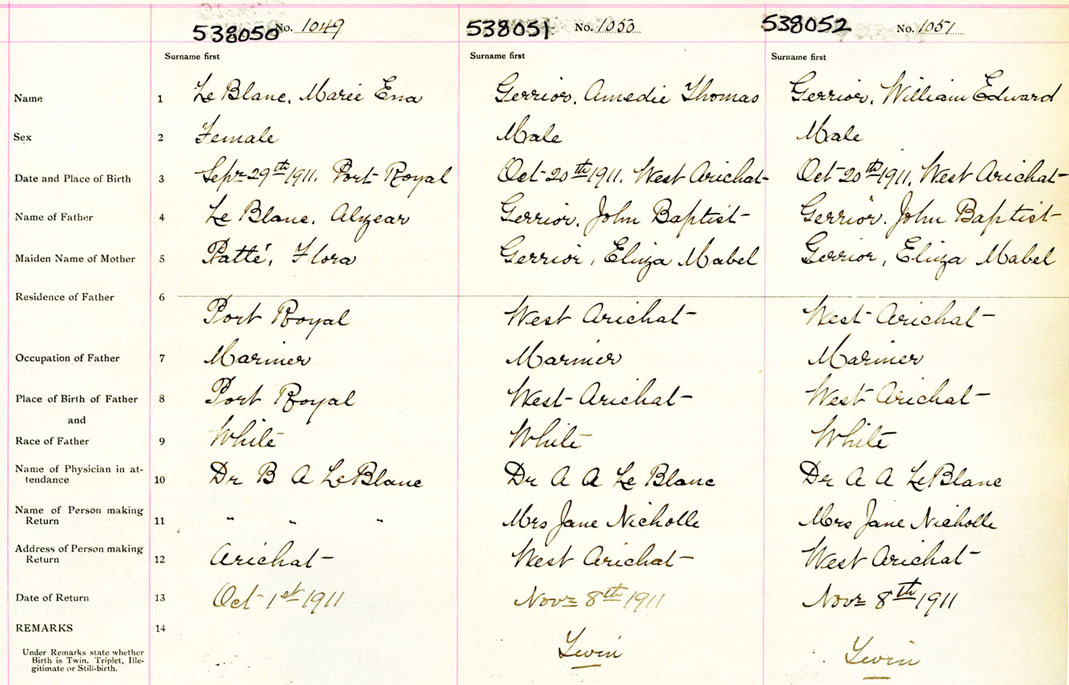 538050 No. 1049 538051 No. 1053 538052 No. 1051
Surname first Surname first Surname first
Name 1 Le Blanc, Marie Ena Gerrior, Amedie Thomas Gerrior, William Edward
Sex 2 Female Male Male
Date and Place of Birth 3 Sept 29th 1911. Port Royal Oct 20th 1911. West Arichat Oct 20th 1911, West Arichat
Name of Father 4 Le Blanc, Alyear Gerrior, John Baptist Gerrior, John Baptist
Maiden Name of Mother 5 Patté, Flora Gerrior, Eliza Mabel Gerrior, Eliza Mabel
Residence of Father 6
Port Royal West Arichat West Arichat
Occupation of Father 7 Mariner Mariner Mariner
Place of Birth of Father 8 Port Royal West Arichat West Arichat
and
Race of Father 9 White White White
Name of Physician in at-
tendance 10 Dr B A LeBlanc Dr A A Le Blanc Dr A A LeBlanc
Name of Person making
Return 11 " " " Mrs Jane Nicholle Mrs Jane Nicholle
Address of Person making
Return 12 Arichat West Arichat West Arichat
Date of Return 13 Oct 1st 1911 Novr 8th 1911 Novr 8th 1911
REMARKS 14
Under Remarks state whether
Birth is Twin, Triplet, Ille-
gitimate or Still-birth.
Twin Twin